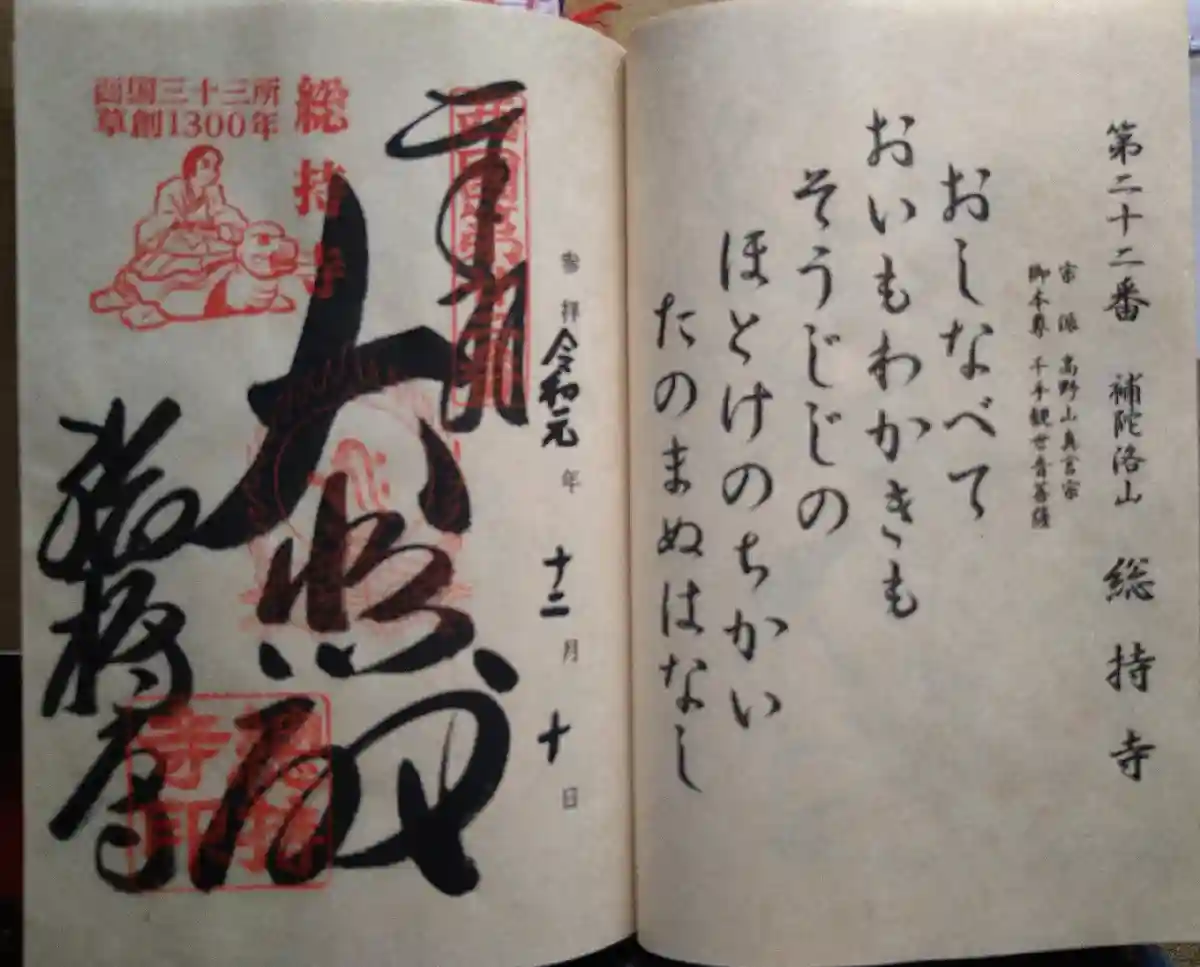 第二十二番 補陀洛山 総持寺
宗派 高野山真言宗
御本尊 千手観世音菩薩
おしなべて
おいもわかきも
そうじじの
ほとけのちかい
たのまぬはなし
参拝 令和元年 十二月 十日
奉拝
大悲殿
総持寺
西国三十三所
草創1300年
総持寺
総持寺印